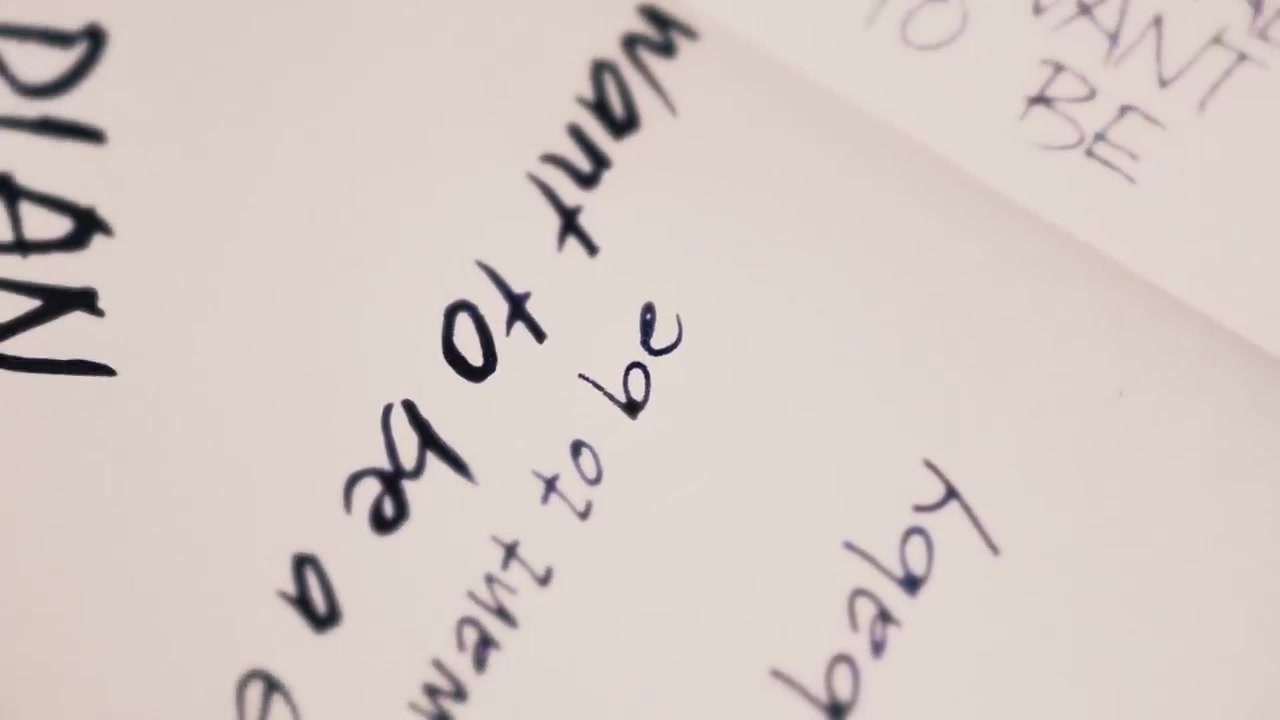 WANT
BE
DIAN
Want to be a
want to be
baby